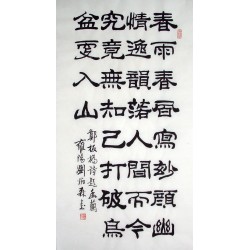 春雨春風寫妙顔幽
情逸韻落人間而今
究竟無知己打破烏
盆更入山
鄭板橋詩題畫蘭
陽劉伯森